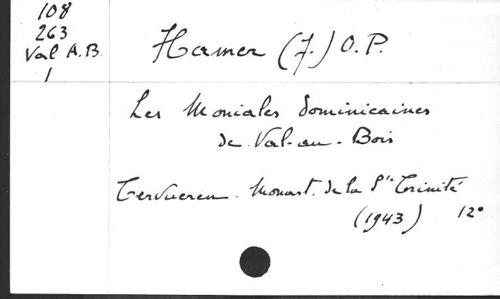 108
263
Val A.B.
1
Hamer (J.) O.P.
Les Moniales dominicaines
de Val-au-Bois
Tervueren. Monast. de la Ste Trinité
(1943) 12°